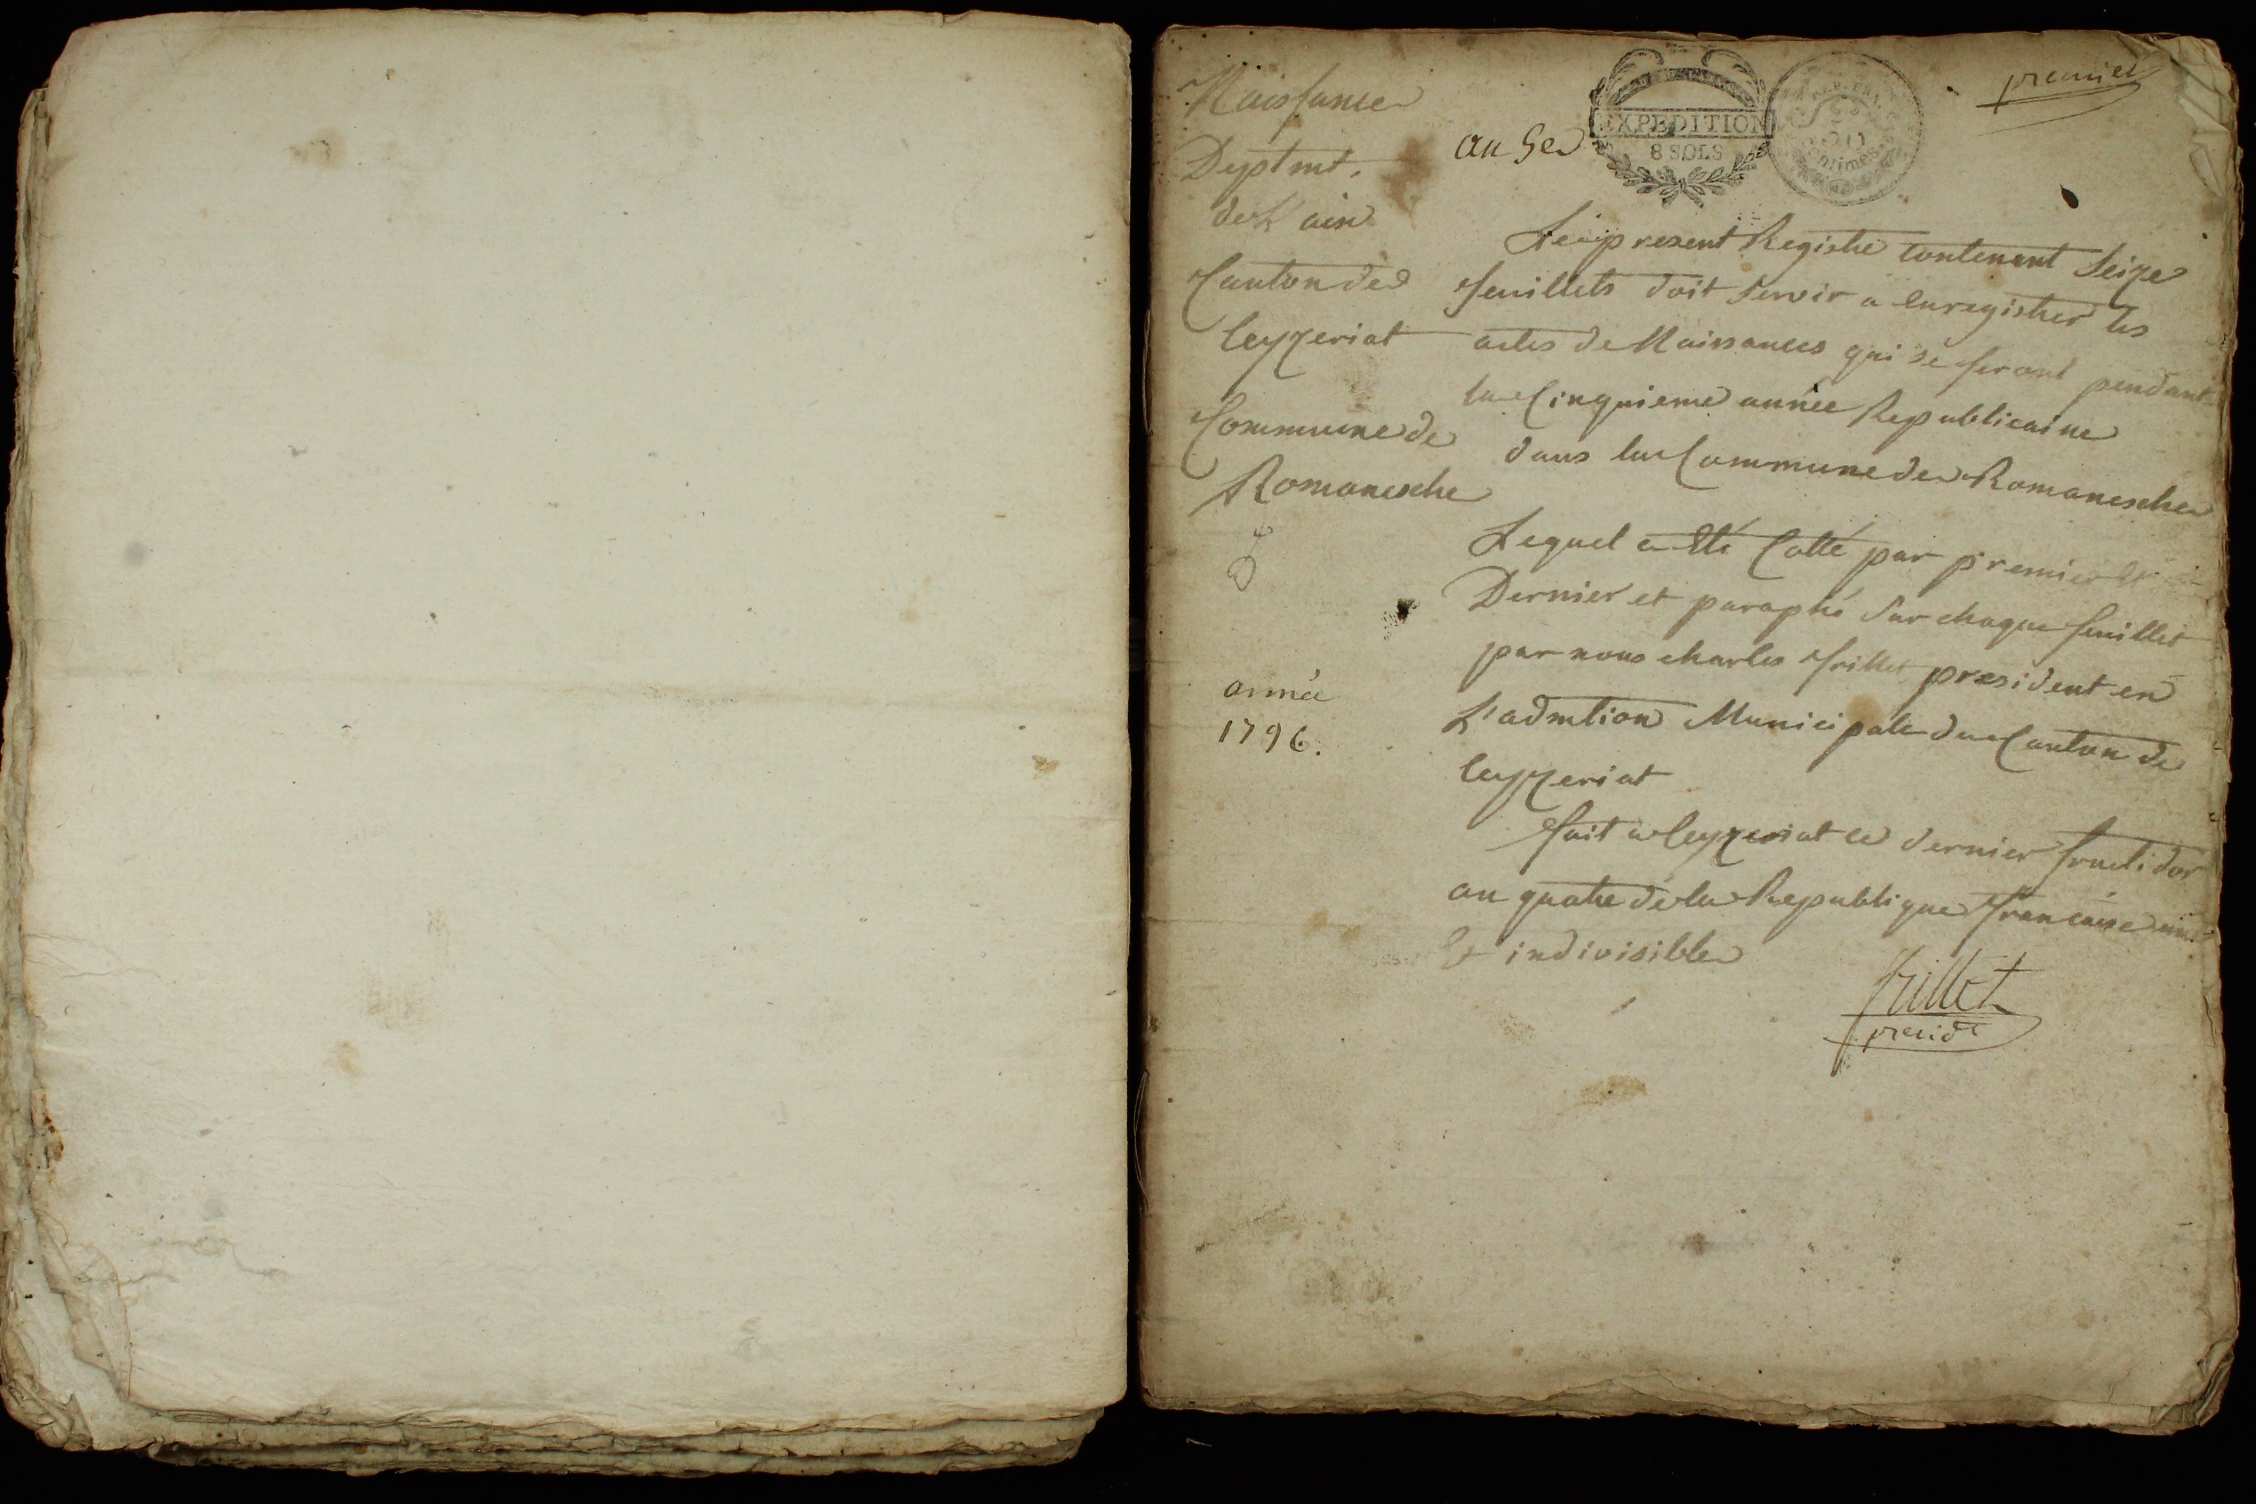 premier
Naissance
an 5e
EXPEDITION
8 SOLS
REP. FRA.
50
centimes
Deptmt.
de L'ain
Canton de
Ceyzeriat
Commune de
Romanesche
année
1796.
Le present Registre contenant Seize
feuillets doit servir a Enregistrer les
actes de Naissances qui se feront pendant
la Cinquieme année Republicaine
dans la Commune de Romanesche
Lequel a Eté Cotté par premier Et
Dernier et paraphé sur chaque feuillet
par nous charles frillet president en
L'admtion Municipale du Canton de
Ceyzeriat
fait a Ceyzeriat ce dernier fructidor
an quatre de la Republique francaise une
Et indivisible
frillet
presidt